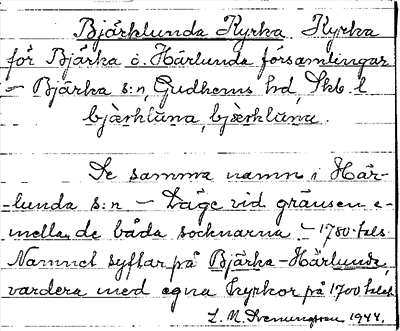 Bjärklunda Kyrka. Kyrka
för Bjärka o. Härlunda församlingar
— Bjärka s:n, Gudhems hd, Skb. l.
bjærkluna, bjærkluna.
Se samma namn i Här-
-lunda s:n — Läge vid gränsen e-
mellan de båda socknarna. — 1780-tals.
Namnet syftar på Bjärka-Härlunda,
vardera med egna kyrkor på 1700 talet
1944.